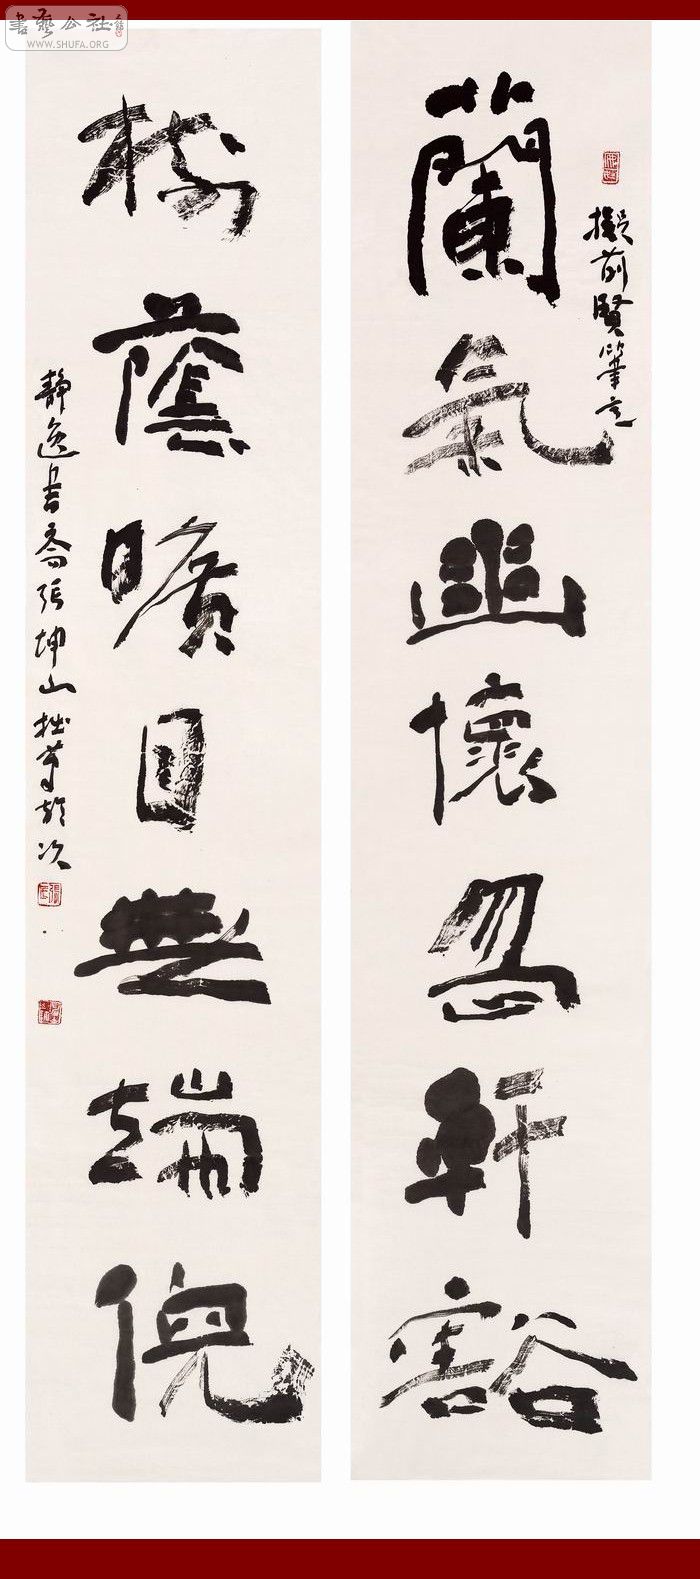 書藝公社
WWW.SHUFA.ORG
擬前賢筆意
蘭氣幽懷忽軒豁
樹蔭曠目無端倪
靜逸書齋張坤山拙筆於京